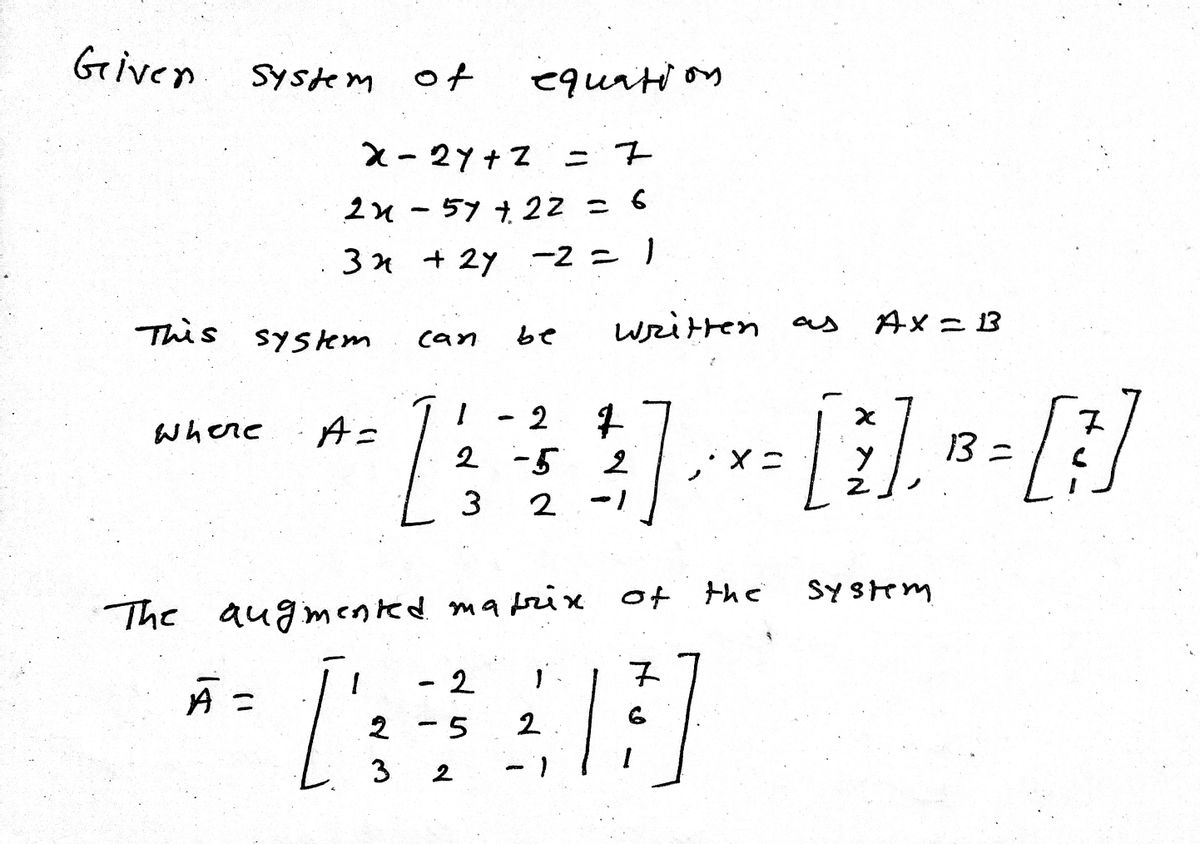 Given system of equation
x - 2y + z = 7
2x - 5y + 2z = 6
3x + 2y - z = 1
This system can be written as AX = B
where A = [1 -2 1; 2 -5 2; 3 2 -1], X = [x; y; z], B = [7; 6; 1]
The augmented matrix of the system
Ā = [1 -2 1 | 7; 2 -5 2 | 6; 3 2 -1 | 1]